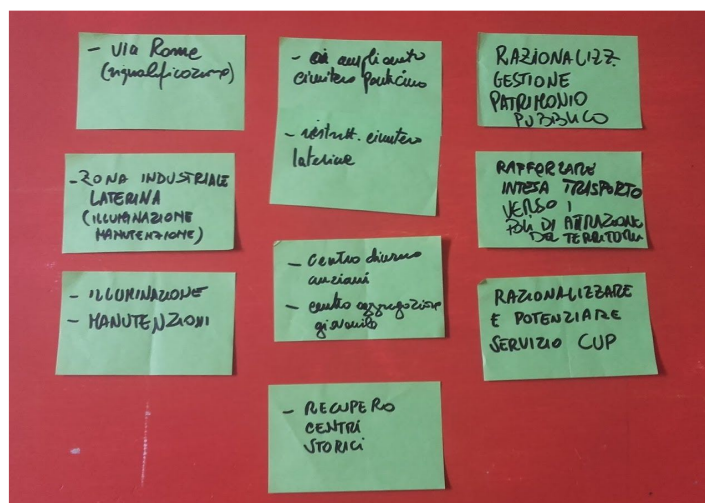 - Via Roma
(riqualificazione)
- ZONA INDUSTRIALE
LATERINA
(ILLUMINAZIONE
MANUTENZIONE)
- ILLUMINAZIONE
- MANUTENZIONI
- ampliamento
cimitero Ponticino
- ristrutt. cimitero
laterina
- Centro diurno
anziani
- centro aggregazione
giovanile
- RECUPERO
CENTRI
STORICI
RAZIONALIZZ.
GESTIONE
PATRIMONIO
PUBBLICO
RAFFORZARE
INTESA TRASPORTO
VERSO I
POLI DI ATTRAZIONE
DEI TERRITORI
RAZIONALIZZARE
E POTENZIARE
SERVIZIO CUP